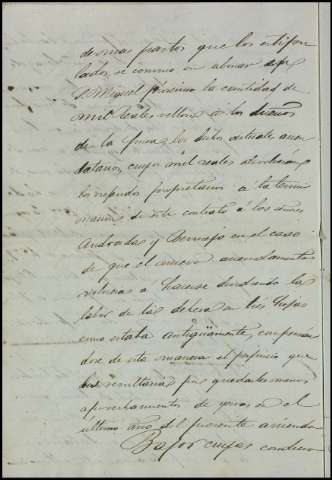 demas partos que los estipu
lados, se convino en abonar
S. Miguel proximo la cantidad de
mil reales vellon a los dueños
de la finca los dichos actuales arren
datarios, cuyos mil reales devolverán
los referidos propietarios a la termi
nacion de este contrato á los Sres
Andradas y Bermejo en el caso
de que el nuevo arrendamiento
volviese a hacerse dividiendo la
labor de las dehesa a tres hojas
como estaba antigüamente, compensán
dose de esta manera el perjuicio que
les resultaria por quedarles menos
aprovechamientos de yervas en el
ultimo año del presente arriendo
Bajo cuyas condicio